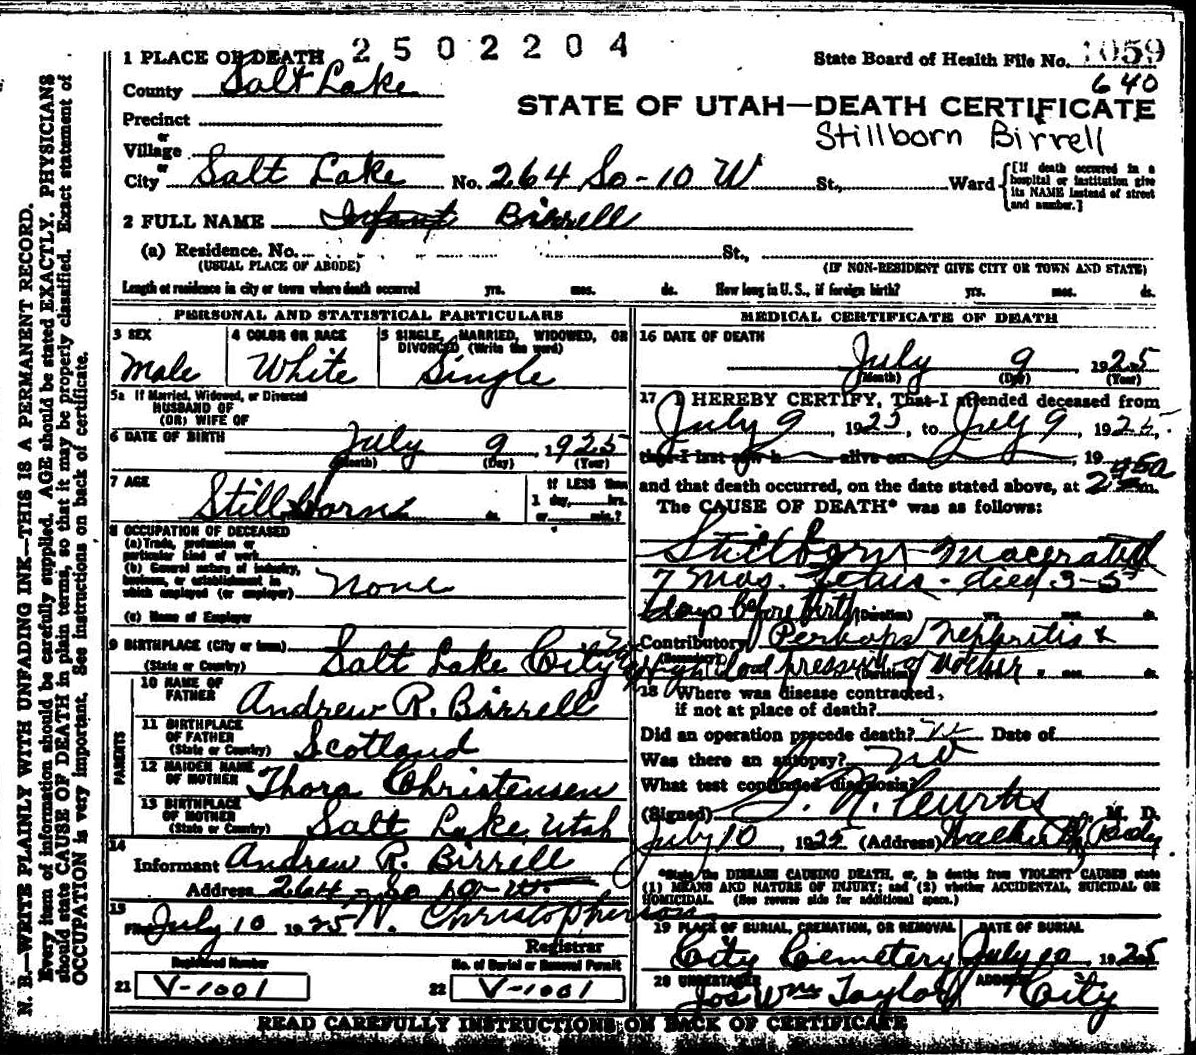 2502204
1 PLACE OF DEATH
State Board of Health File No. 1059
640
County Salt Lake
STATE OF UTAH—DEATH CERTIFICATE
Precinct
Stillborn Birrell
or
Village
or
City Salt Lake No. 264 So-10 W St., Ward
[If death occurred in a hospital or institution give its NAME instead of street and number.]
2 FULL NAME Infant Birrell
(a) Residence. No. St.,
(USUAL PLACE OF ABODE) (IF NON-RESIDENT GIVE CITY OR TOWN AND STATE)
Length of residence in city or town where death occurred yrs. mos. ds. How long in U.S., if foreign birth? yrs. mos. ds.
PERSONAL AND STATISTICAL PARTICULARS
3 SEX
Male
4 COLOR OR RACE
White
5 SINGLE, MARRIED, WIDOWED, OR DIVORCED (Write the word)
Single
5a If Married, Widowed, or Divorced
HUSBAND OF
(OR) WIFE OF
6 DATE OF BIRTH
July 9, 1925
(Month) (Day) (Year)
7 AGE
Stillborn ds.
If LESS than
1 day, hrs.
or min.?
8 OCCUPATION OF DECEASED
(a) Trade, profession or
particular kind of work
(b) General nature of industry,
business, or establishment in
which employed (or employer) None
(c) Name of Employer
9 BIRTHPLACE (City or town)
(State or Country) Salt Lake City
PARENTS
10 NAME OF FATHER Andrew R. Birrell
11 BIRTHPLACE OF FATHER
(State or Country) Scotland
12 MAIDEN NAME OF MOTHER Thora Christensen
13 BIRTHPLACE OF MOTHER
(State or Country) Salt Lake, Utah
14
Informant Andrew R. Birrell
Address 264 - So 10 - W
15
July 10 1925 W. Christopherson
Registrar
Registered Number
21 V-1001
No. of Burial or Removal Permit
22 V-1001
MEDICAL CERTIFICATE OF DEATH
16 DATE OF DEATH
July 9 1925
(Month) (Day) (Year)
17 I HEREBY CERTIFY, That I attended deceased from
July 9, 1925, to July 9, 1925.
that I last saw h alive on , 19
and that death occurred, on the date stated above, at m.
The CAUSE OF DEATH* was as follows:
Stillborn - macerated
7 Mos. Fetus - died 3-5
days before birth (Duration) yrs. mos. ds.
Contributory Perhaps Nephritis &
(Secondary) high blood pressure of mother (Duration) ds.
18 Where was disease contracted,
if not at place of death?
Did an operation precede death? Date of
Was there an autopsy? no
What test confirmed diagnosis?
(Signed) Curtis, M. D.
July 10, 1925 (Address) Walker
*State the DISEASE CAUSING DEATH, or, in deaths from VIOLENT CAUSES state
(1) MEANS AND NATURE OF INJURY; and (2) whether ACCIDENTAL, SUICIDAL OR
HOMICIDAL. (See reverse side for additional space.)
19 PLACE OF BURIAL, CREMATION, OR REMOVAL
City Cemetery
DATE OF BURIAL
July 10 1925
20 UNDERTAKER
Jos Wm Taylor
ADDRESS
City
READ CAREFULLY INSTRUCTIONS ON BACK OF CERTIFICATE
N. B.—WRITE PLAINLY WITH UNFADING INK—THIS IS A PERMANENT RECORD.
Every item of information should be carefully supplied. AGE should be stated EXACTLY. PHYSICIANS
should state CAUSE OF DEATH in plain terms, so that it may be properly classified. Exact statement of
OCCUPATION is very important. See instructions on back of certificate.